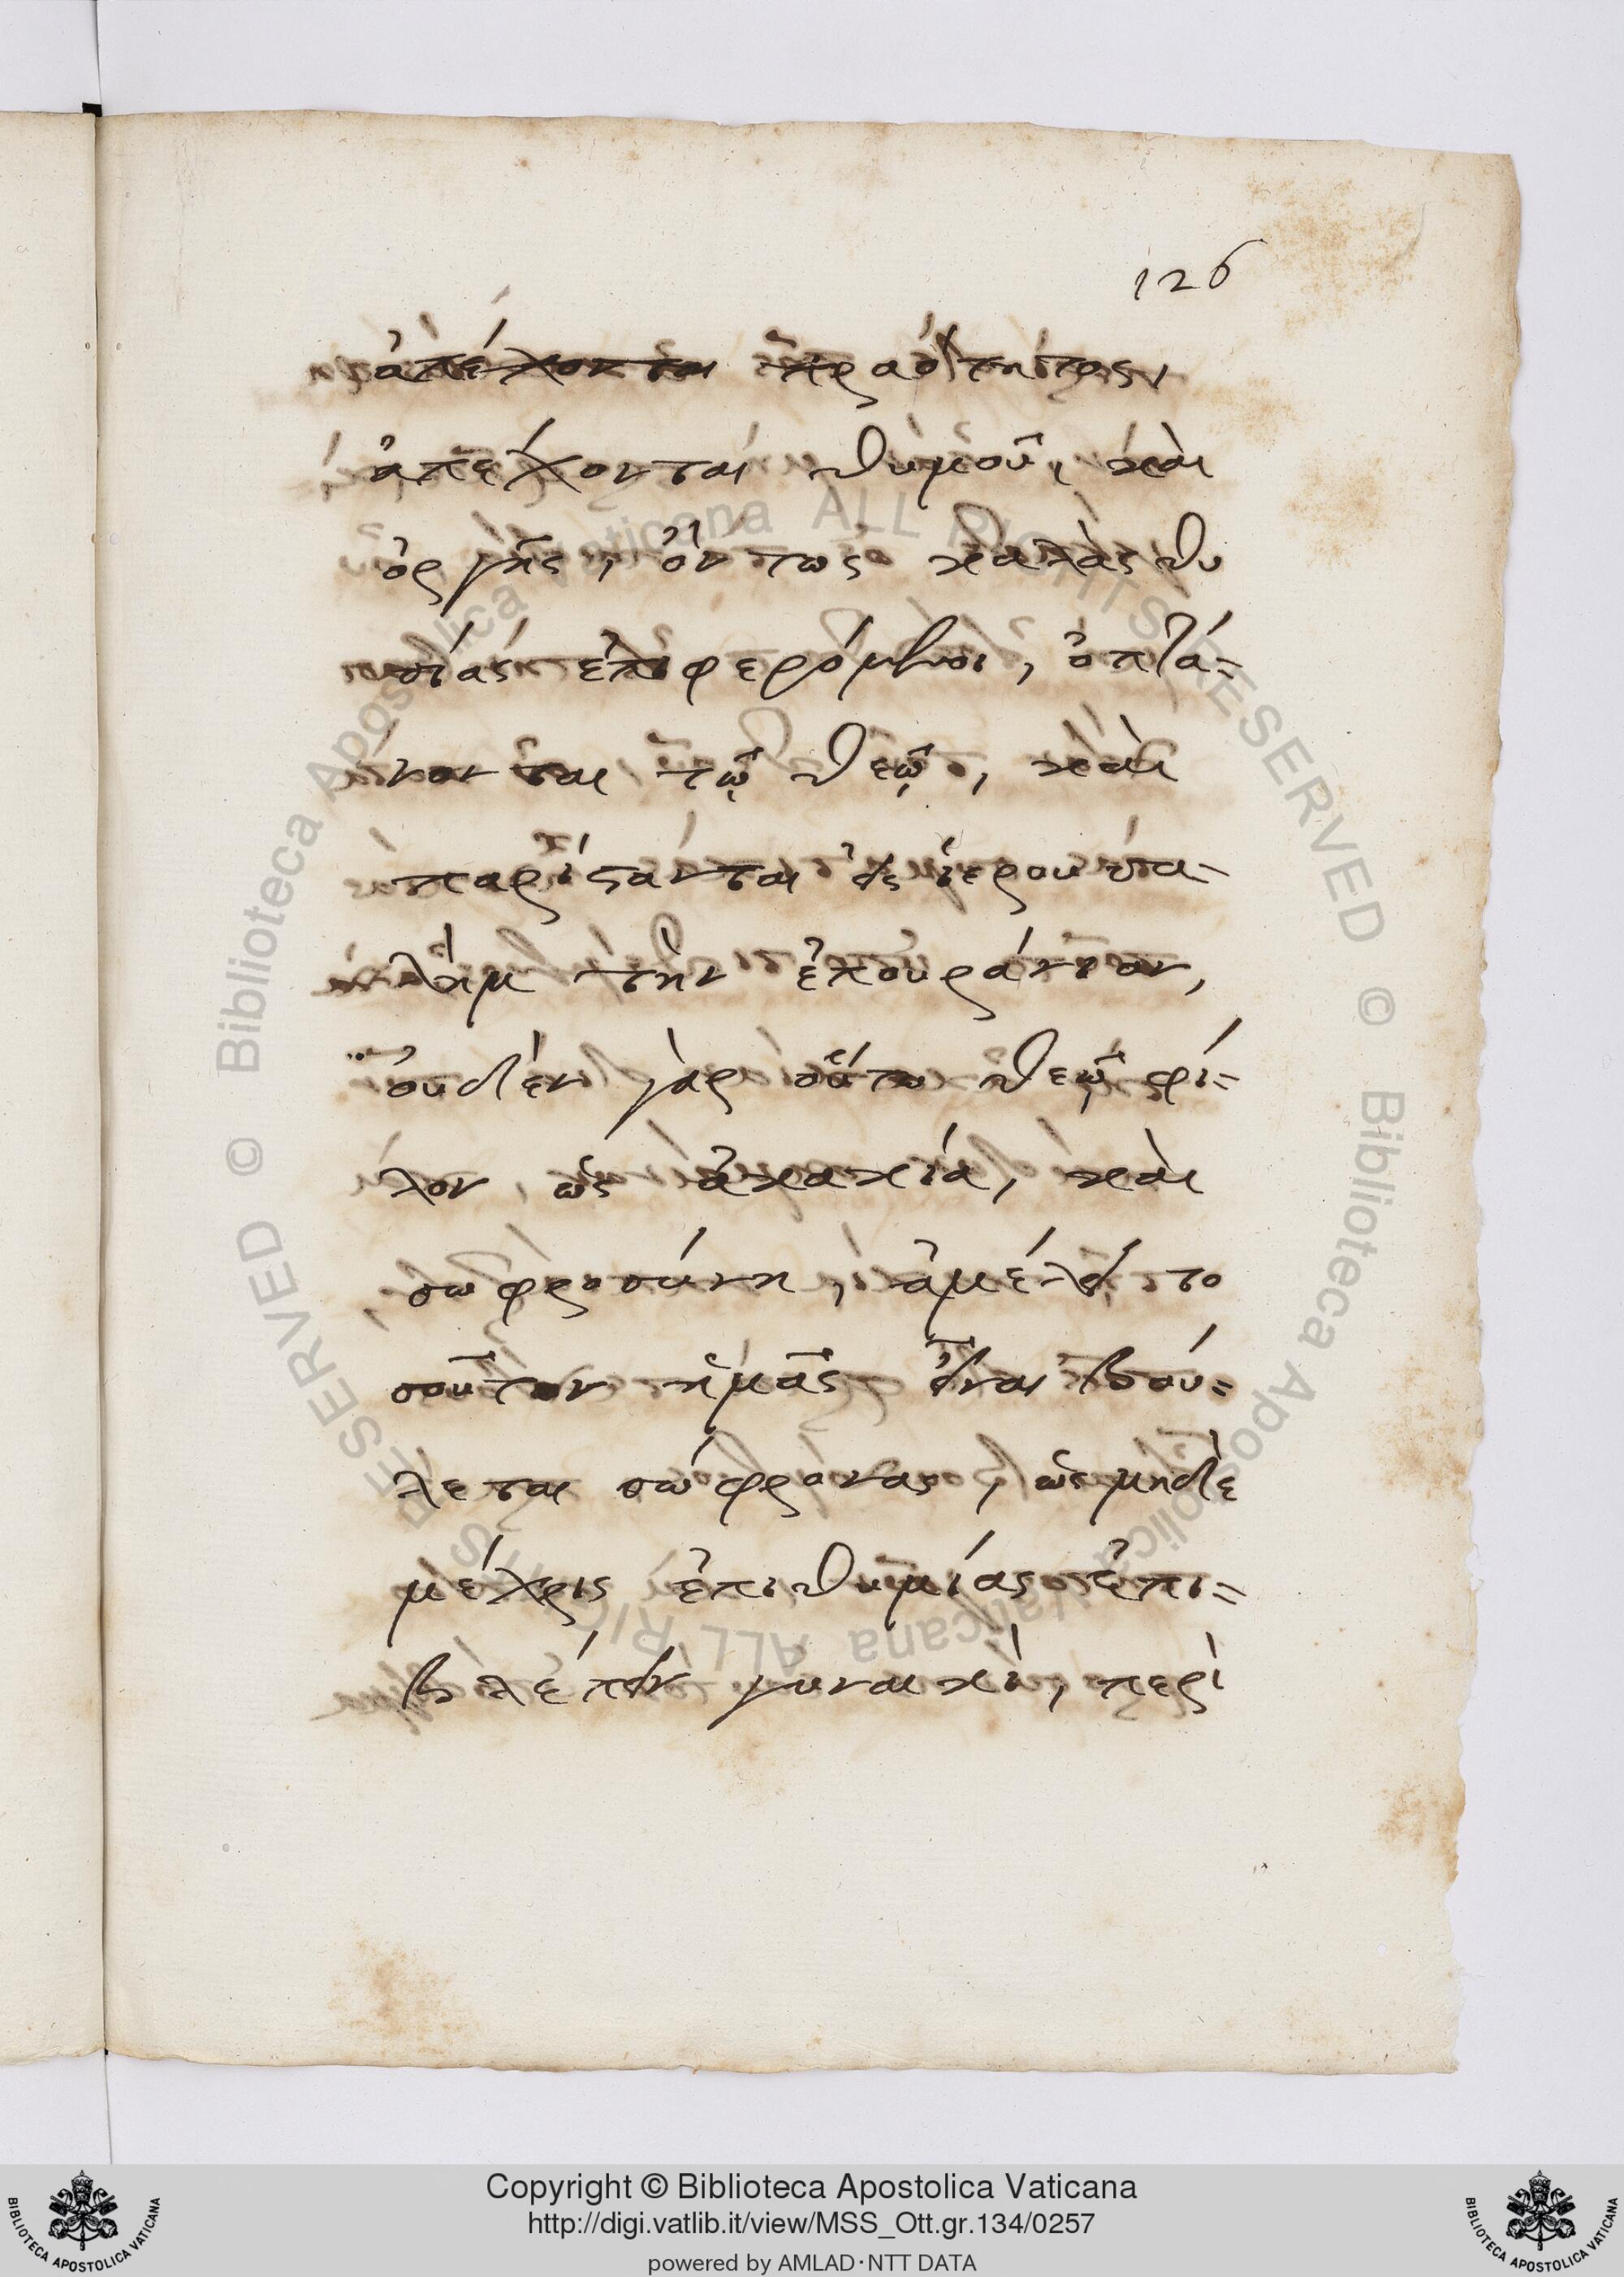 126
ἀπέχονται πραότητος,
ἀπέχονται θυμοῦ, καὶ
ὀργῆς, ὄντως καλὰς θυ
σίας ἐπιφερόμενοι, ὀπτά-
νονται τῷ θεῷ, καὶ
παρίστανται εἰς ἱερουσα-
λὴμ τὴν ἐπουράνιον,
οὐδὲν γὰρ οὕτω θεῷ φί-
λον ὡς ἀκακία, καὶ
σωφροσύνη, ἀμέλει το
σοῦτον ἡμᾶς εἶναι βού-
λεται σώφρονας, ὡς μηδὲ
μέχρις ἐπιθυμίας ἐπι-
βλέπειν γυναικὶ, περὶ
Copyright © Biblioteca Apostolica Vaticana
http://digi.vatlib.it/view/MSS_Ott.gr.134/0257
powered by AMLAD·NTT DATA
BIBLIOTECA APOSTOLICA VATICANA
BIBLIOTECA APOSTOLICA VATICANA
© Biblioteca Apostolica Vaticana ALL RIGHTS RESERVED
© Biblioteca Apostolica Vaticana ALL RIGHTS RESERVED